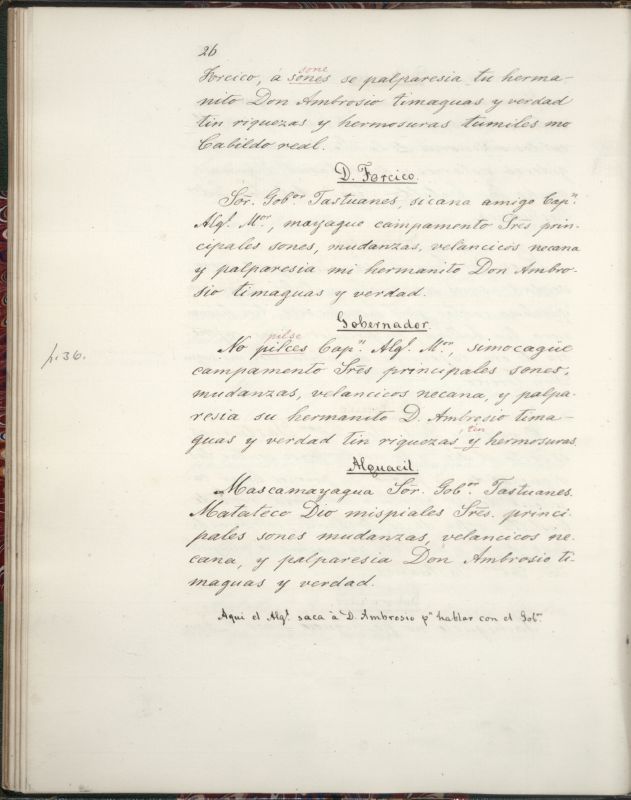 26
sone
Forcico, á sones se palparesia tu herma-
nito Don Ambrosio timaguas y verdad
tin riquezas y hermosuras tumiles mo
Cabildo real.
D. Forcico.
Sõr. Gob.or Tastuanes, sicana amigo Cap.n
Alg.l M.or, mayague campamento Srẽs prin-
cipales sones, mudanzas, velancicos necana
y palparesia mi hermanito Don Ambro-
sio timaguas y verdad.
Gobernador.
pilse
No pilces Cap.n Alg.l M.or, simocagüe
p. 36.
campamento Srẽs principales sones,
mudanzas, velancicos necana, y palpa-
resia su hermanito D. Ambrosio tima-
tin
guas y verdad tin riquezas y hermosuras.
Alguacil.
Mascamayagua Sõr. Gob.or Tastuanes.
Matateco Dio mispiales Srẽs. princi
pales sones mudanzas, velancicos ne-
cana, y palparesia Don Ambrosio ti-
maguas y verdad.
Aqui el Alg.l saca à D. Ambrosio p.a hablar con el Gob.or